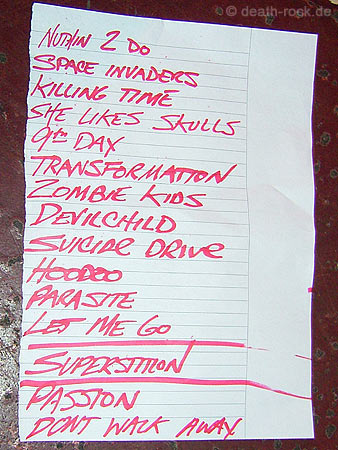 © death-rock.de
NUTHIN 2 DO
SPACE INVADERS
KILLING TIME
SHE LIKES SKULLS
9TH DAY
TRANSFORMATION
ZOMBIE KIDS
DEVILCHILD
SUICIDE DRIVE
HOODOO
PARASITE
LET ME GO
SUPERSTITION
PASSION
DONT WALK AWAY